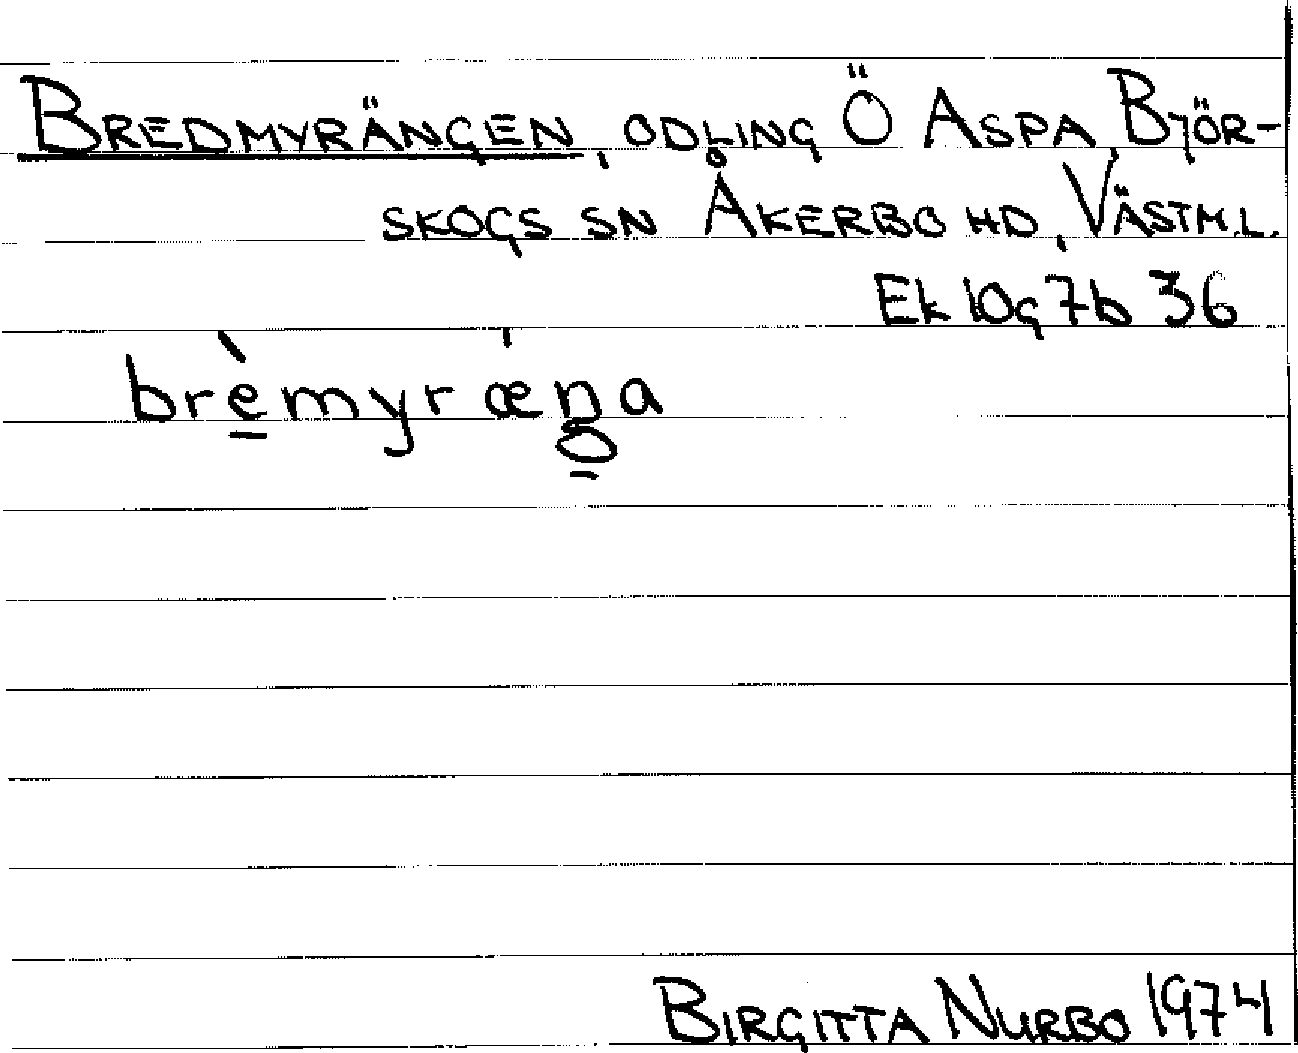 BREDMYRÄNGEN, ODLING Ö ASPA, BJÖR-
SKOGS SN ÅKERBO HD, VÄSTM.L.
Ek 10g7b 36
brèmyræŋa
BIRGITTA NURBO 1974